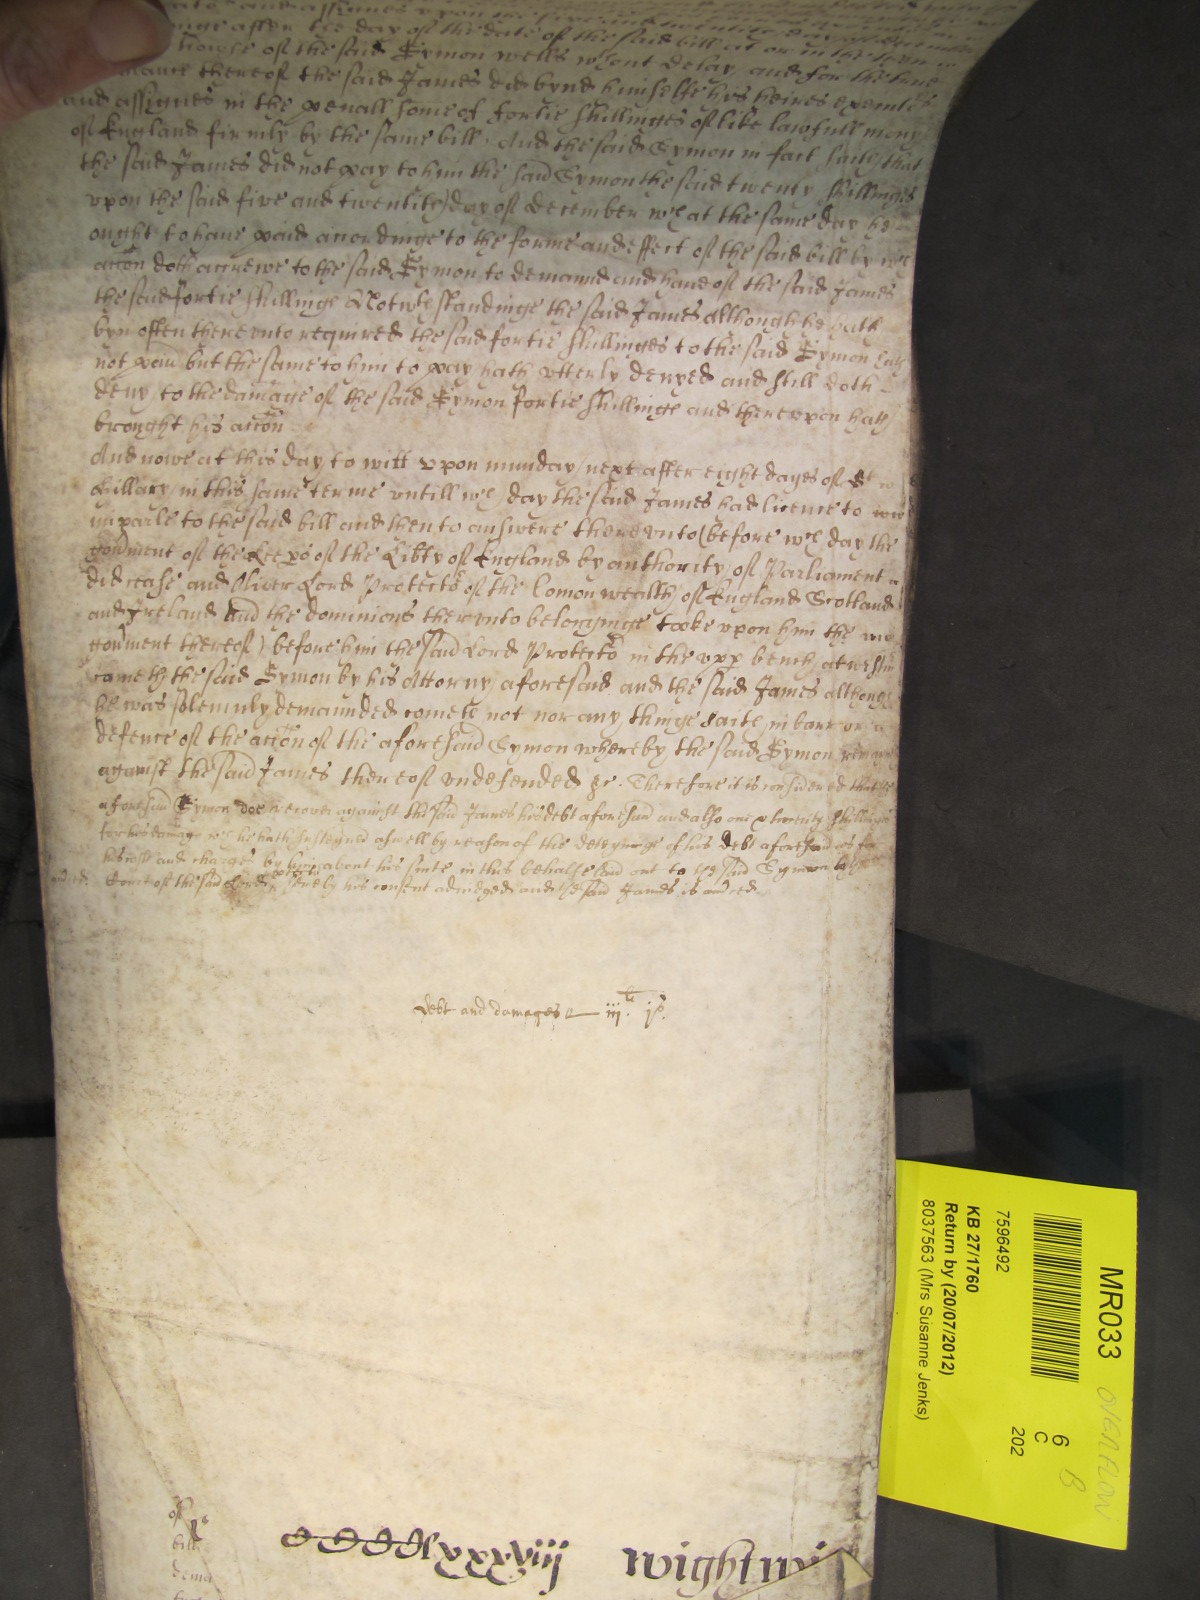 and assignes upon the five and twentith day of December
after the day of the date of the said bill at or in the
howse of the said Symon Wells wthout delay and for the true
thereof the said James did bynd himselfe his heires executors
and assignes in the penall some of fortie shillinges of like lawfull mony
of England firmly by the same bill. And the said Symon in fact saith that
the said James did not pay to him the said Symon the said twenty shillinges
upon the said five and twentith day of December wch at the same day he
ought to have paid accordinge to the forme and effect of the said bill by wch
accon doth accrewe to the said Symon to demaund and have of the said James
the said fortie shillinge Notwthstandinge the said James although he hath
byn often thereunto required the said fortie shillinges to the said Symon hath
not paid but the same to him to pay hath utterly denyed and still doth
deny to the damage of the said Symon fortie shillinge and thereupon hath
brought his accon
And nowe at this day to witt upon munday next after eight dayes of St
Hillary in this same terme untill wch day the said James had licence to
imparle to the said bill and then to answere thereunto (before wch day the
govment of the Keeps of the Libty of England by authority of Parliament
did cease and Oliver Lord Protector of the Comonwealth of England Scotland
and Ireland and the dominions thereunto belonginge tooke upon him the
govment thereof) before him the said Lord Protector in the upp bench at Westm
cometh the said Symon by his Attorny aforesaid and the said James although
he was solemnly demaunded cometh not nor any thinge saith in barr or
defence of the accon of the aforesaid Symon whereby the said Symon remaines
against the said James thereof undefended &c. Therefore it is considered that the
aforesaid Symon doe recover against the said James his debt aforesaid and also one & twenty shillinges
for his damage wch he hath susteyned aswell by reason of the deteyninge of his debt aforesaid as for
his cost and charges by him about his suite in this behalfe laid out to the said Symon by the
Court of the said Lord Protector here by his consent adiudged and the said James is
debt and damages iij li js
of
bill
dema
CCCClxxxviij Wightwi
MR033
OVERFLOW
7596492
6
C
202
B
KB 27/1760
Return by (20/07/2012)
8037563 (Mrs Susanne Jenks)